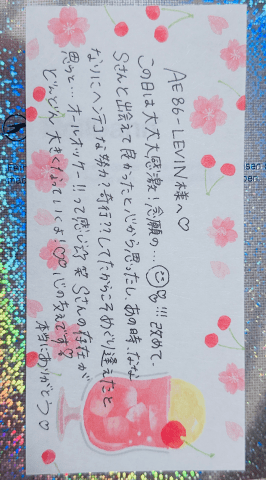 AE86-LEVIN様へ♡
この日は大大大感激!念願の…!!! 改めて、
Sさんと出会えて良かったと心から思ったし、あの時、なな
なりにヘンテコな努力?奇行??してたからこそめぐり逢えたと
思うと…オールオッケー!!って感じ 笑 Sさんの存在が
どんどん大きくなっていくよ!♡♡心の支えです♡
本当にありがとう♡